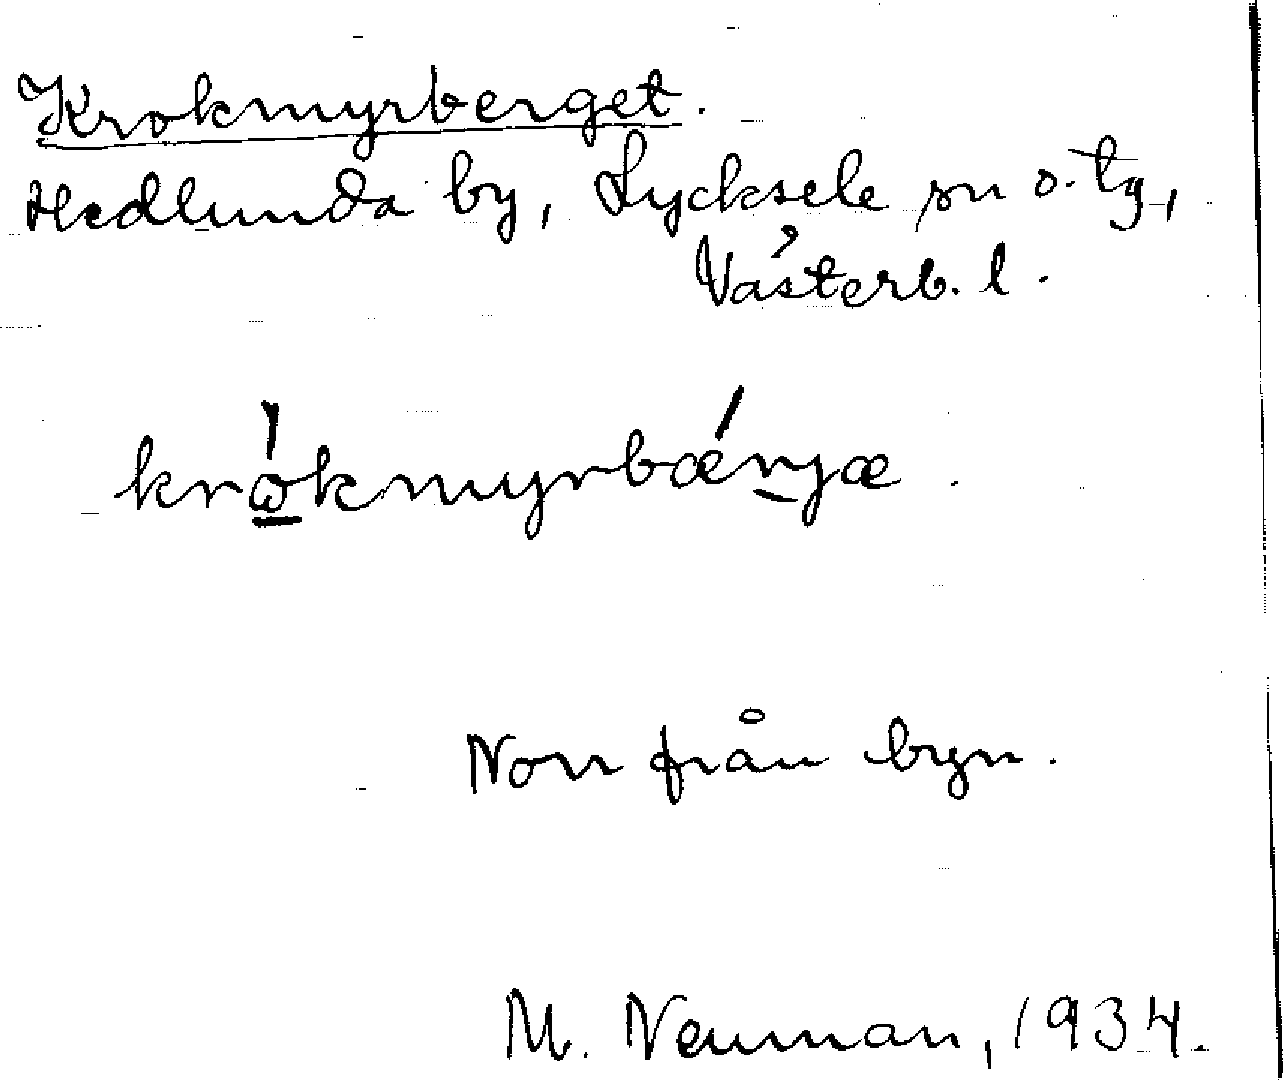 Krokmyrberget.
Hedlunda by, Lycksele sn o. tg,
Västerb. l.
krώ̲kmyrbǽrjæ.
Norr från byn.
M. Neuman, 1934.